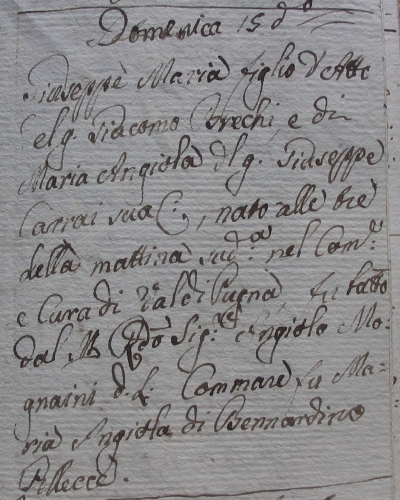 Domenica 15 do
Giuseppe Maria figlio d'
del q. Giacomo Brechi, e di
Maria Angiola del q. Giuseppe
Carrai sua C., nato alle tre
della mattina sud.a nel Com.e
e Cura di Val di Pugna, fu batto
dal M. Rdo Sig.re Angiolo Mo=
gnaini d. L. Commare fu Ma=
ria Angiola di Bernardino